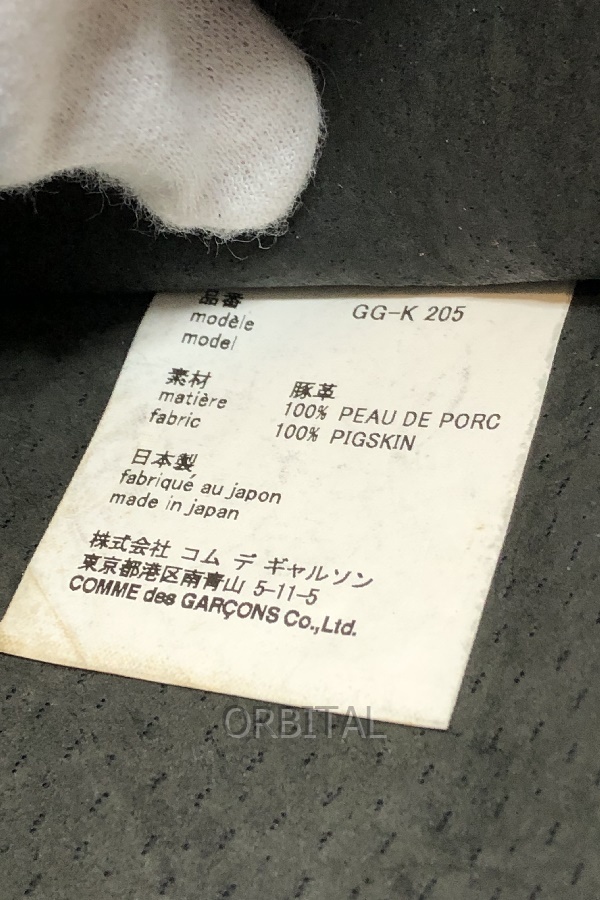 品番
modèle
model
GG-K 205
素材
matière
fabric
豚革
100% PEAU DE PORC
100% PIGSKIN
日本製
fabriqué au japon
made in japan
株式会社 コム デ ギャルソン
東京都港区南青山 5-11-5
COMME des GARÇONS Co.,Ltd.
ORBITAL